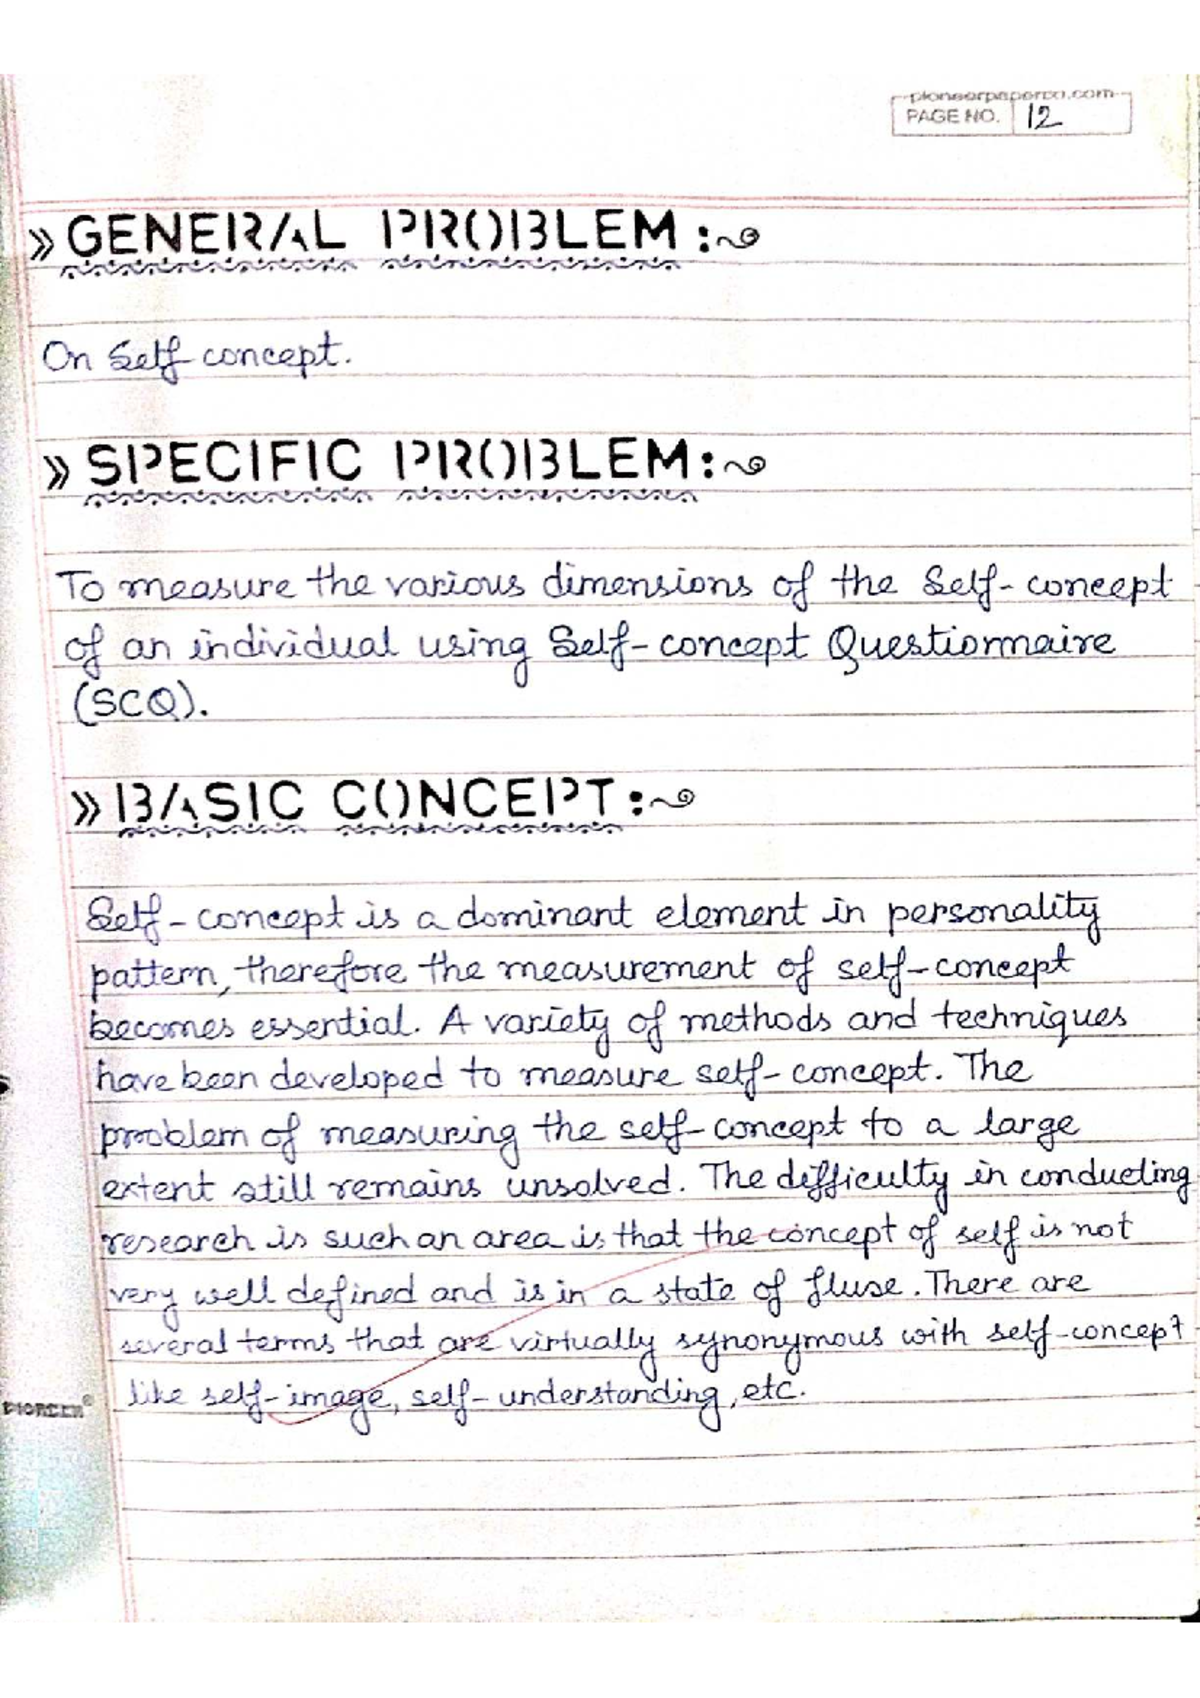 pioneerpaperco.com
PAGE NO. 12
» GENERAL PROBLEM :~
On Self concept.
» SPECIFIC PROBLEM:~
To measure the various dimensions of the Self-concept
of an individual using Self-concept Questionnaire
(SCQ).
» BASIC CONCEPT:~
Self-concept is a dominant element in personality
pattern, therefore the measurement of self-concept
becomes essential. A variety of methods and techniques
have been developed to measure self-concept. The
problem of measuring the self-concept to a large
extent still remains unsolved. The difficulty in conducting
research is such an area is that the concept of self is not
very well defined and is in a state of fluse. There are
several terms that are virtually synonymous with self-concept
like self-image, self-understanding, etc.
PIONEER